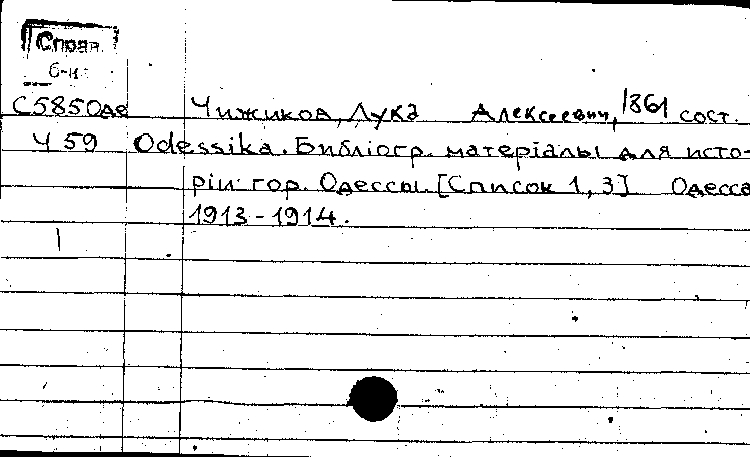 Справ.
б-ка
С585Оде Чижиков, Лука Алексеевич, 1861 сост.
Ч 59 Odessika. Библіогр. матеріалы для исто-
ріи гор. Одессы. [Список 1, 3] Одесса
1913-1914.
1